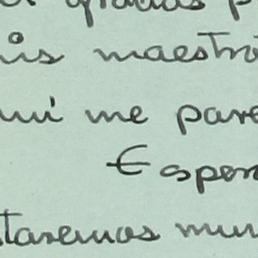 grados p
is maestro
uí me pare
Esper
taremos muy